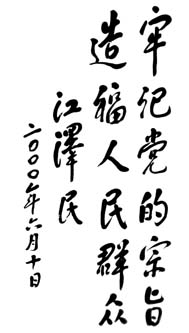 牢记党的宗旨
造福人民群众
江澤民
二〇〇〇年六月十日